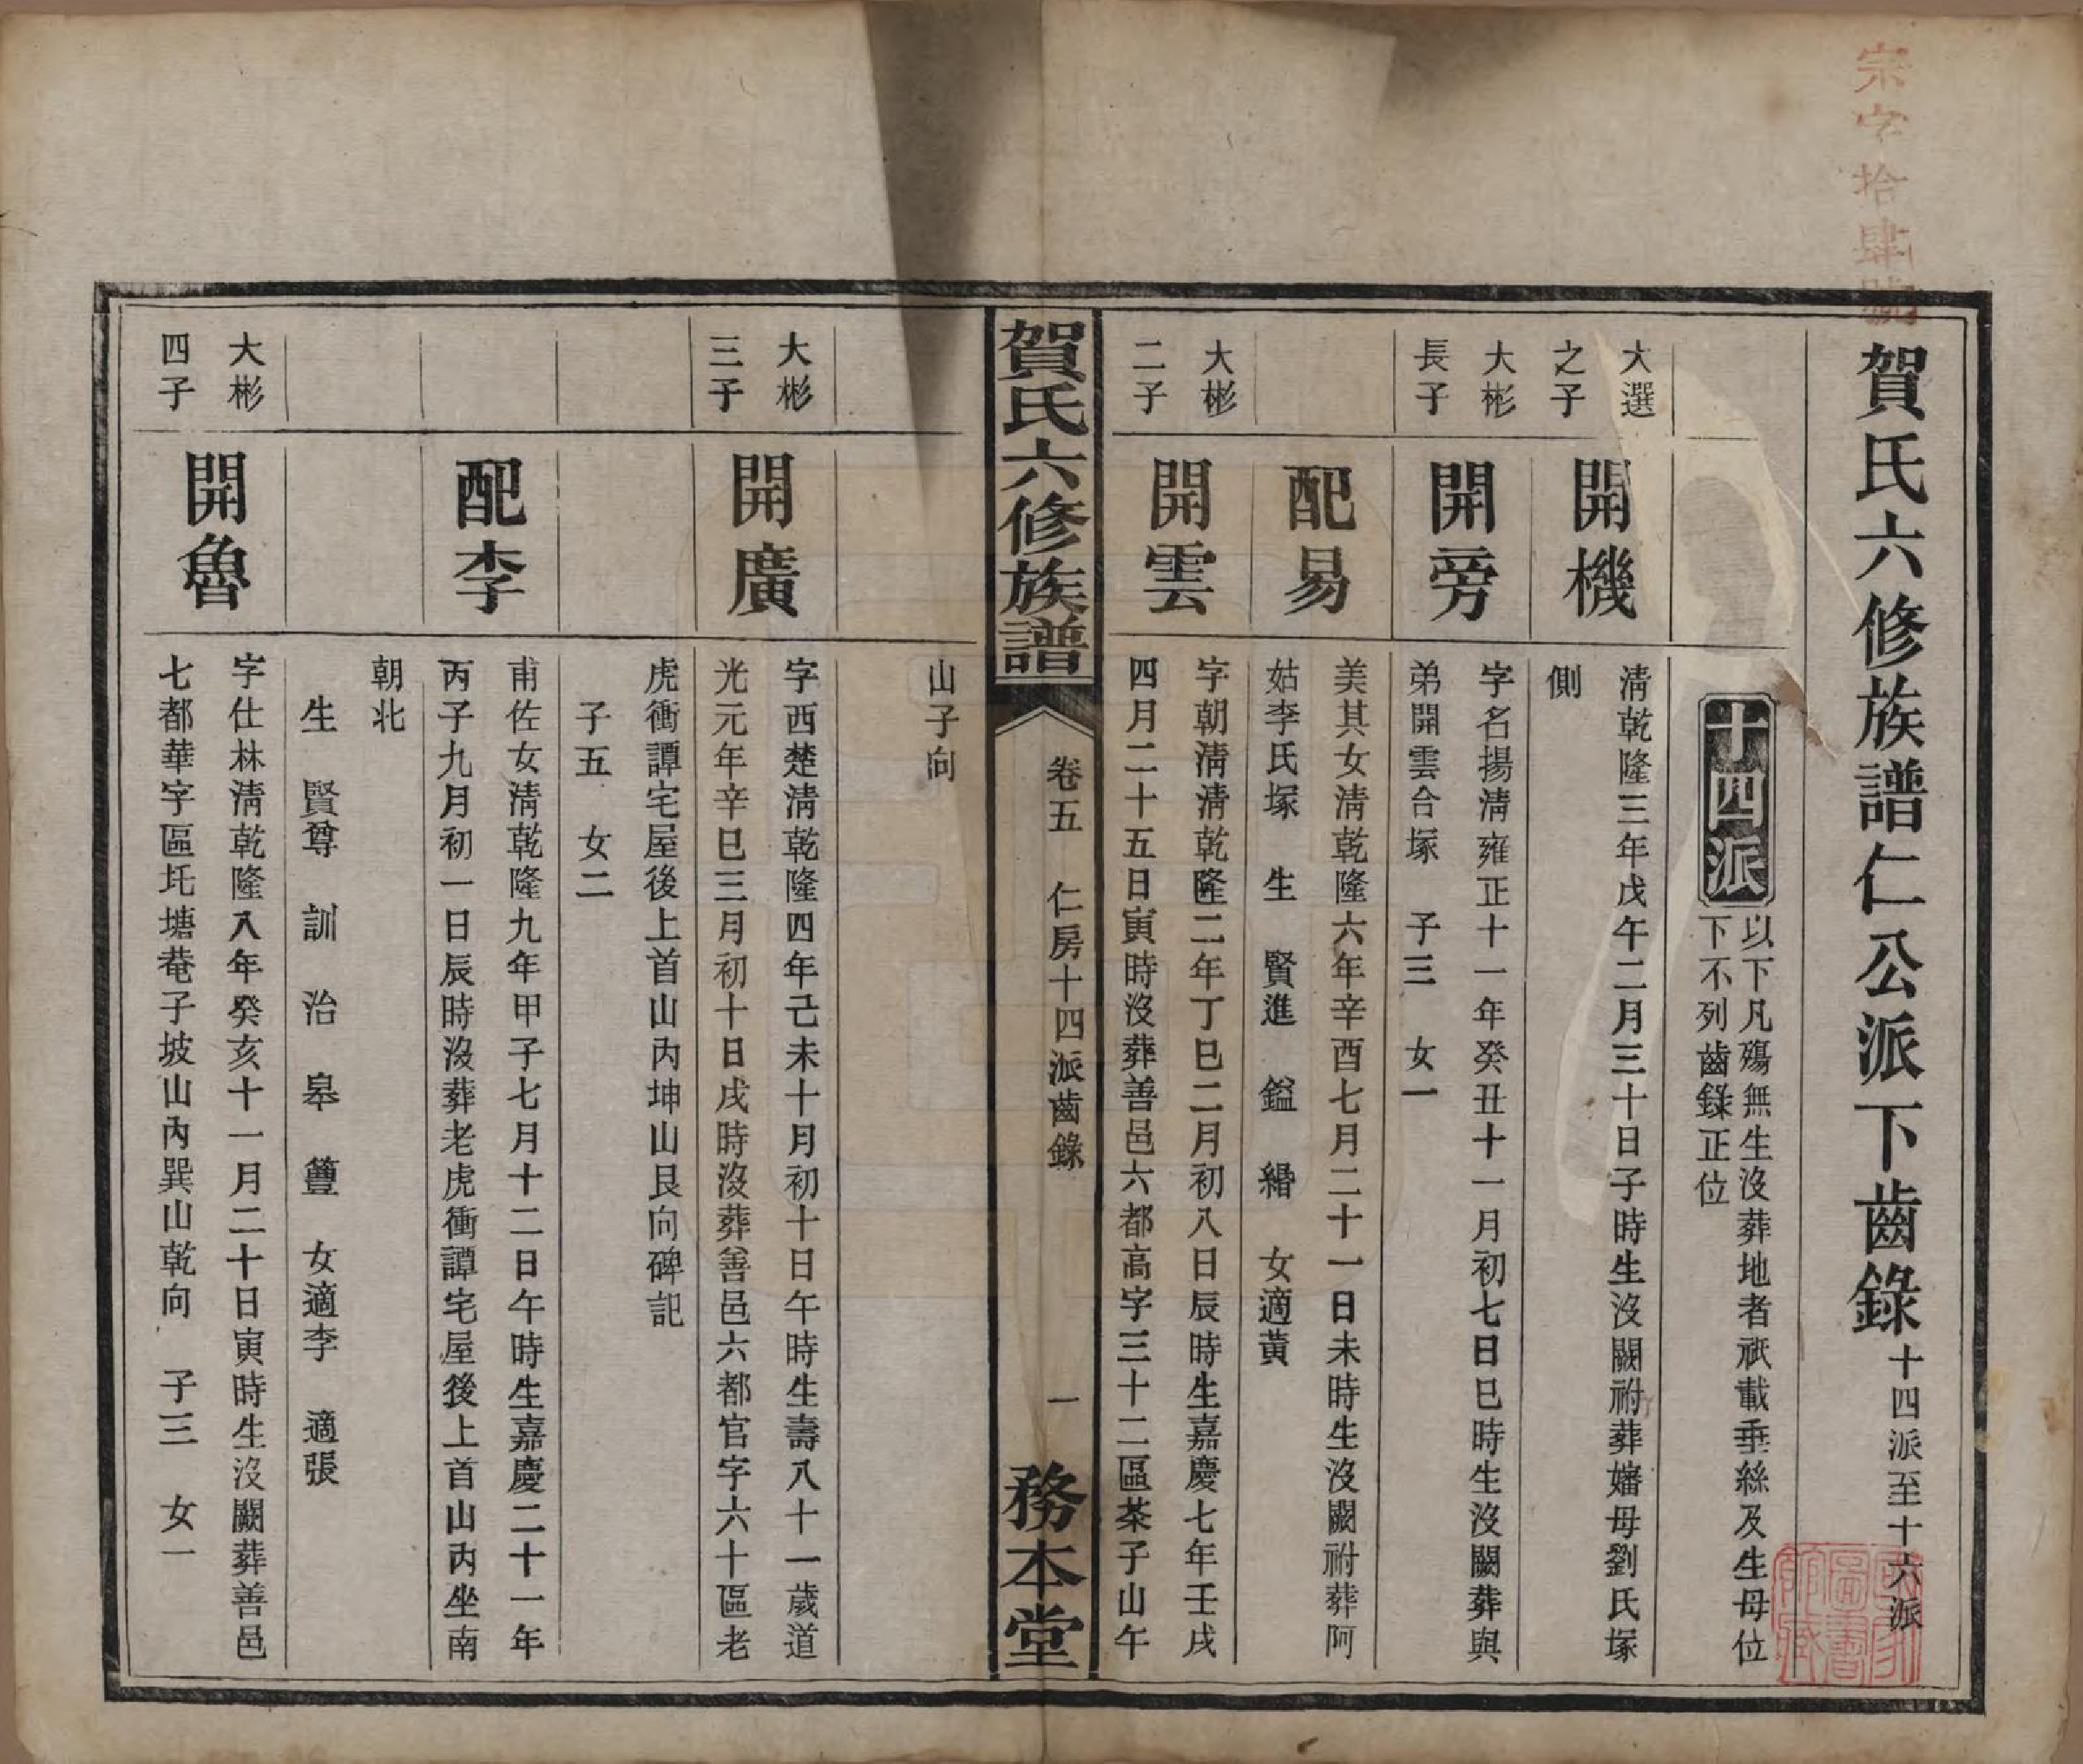 宗字拾肆號
賀氏六修族譜仁公派下齒錄十四派至十六派
十四派
以下凡殤無生沒葬地者祇載垂絲及生母位
下不列齒錄正位
大選
之子
開機
清乾隆三年戊午二月三十日子時生沒闕祔葬嬸母劉氏塚
側
大彬
長子
開旁
字名揚清雍正十一年癸丑十一月初七日巳時生沒闕葬與
弟開雲合塚 子三 女一
配易
美其女清乾隆六年辛酉七月二十一日未時生沒闕祔葬阿
姑李氏塚 生 賢進 鎰 緡 女適黃
大彬
二子
開雲
字朝清清乾隆二年丁巳二月初八日辰時生嘉慶七年壬戌
四月二十五日寅時沒葬善邑六都高字三十二區茶子山午
賀氏六修族譜
卷五 仁房十四派齒錄
一
務本堂
山子向
大彬
三子
開廣
字西楚清乾隆四年己未十月初十日午時生壽八十一歲道
光元年辛巳三月初十日戌時沒葬善邑六都官字六十區老
虎衝譚宅屋後上首山內坤山艮向碑記
子五 女二
配李
甫佐女清乾隆九年甲子七月十二日午時生嘉慶二十一年
丙子九月初一日辰時沒葬老虎衝譚宅屋後上首山內坐南
朝北
生 賢尊 訓 治 皋 簠 女適李 適張
大彬
四子
開魯
字仕林清乾隆八年癸亥十一月二十日寅時生沒闕葬善邑
七都華字區圫塘菴子坡山內巽山乾向 子三 女一